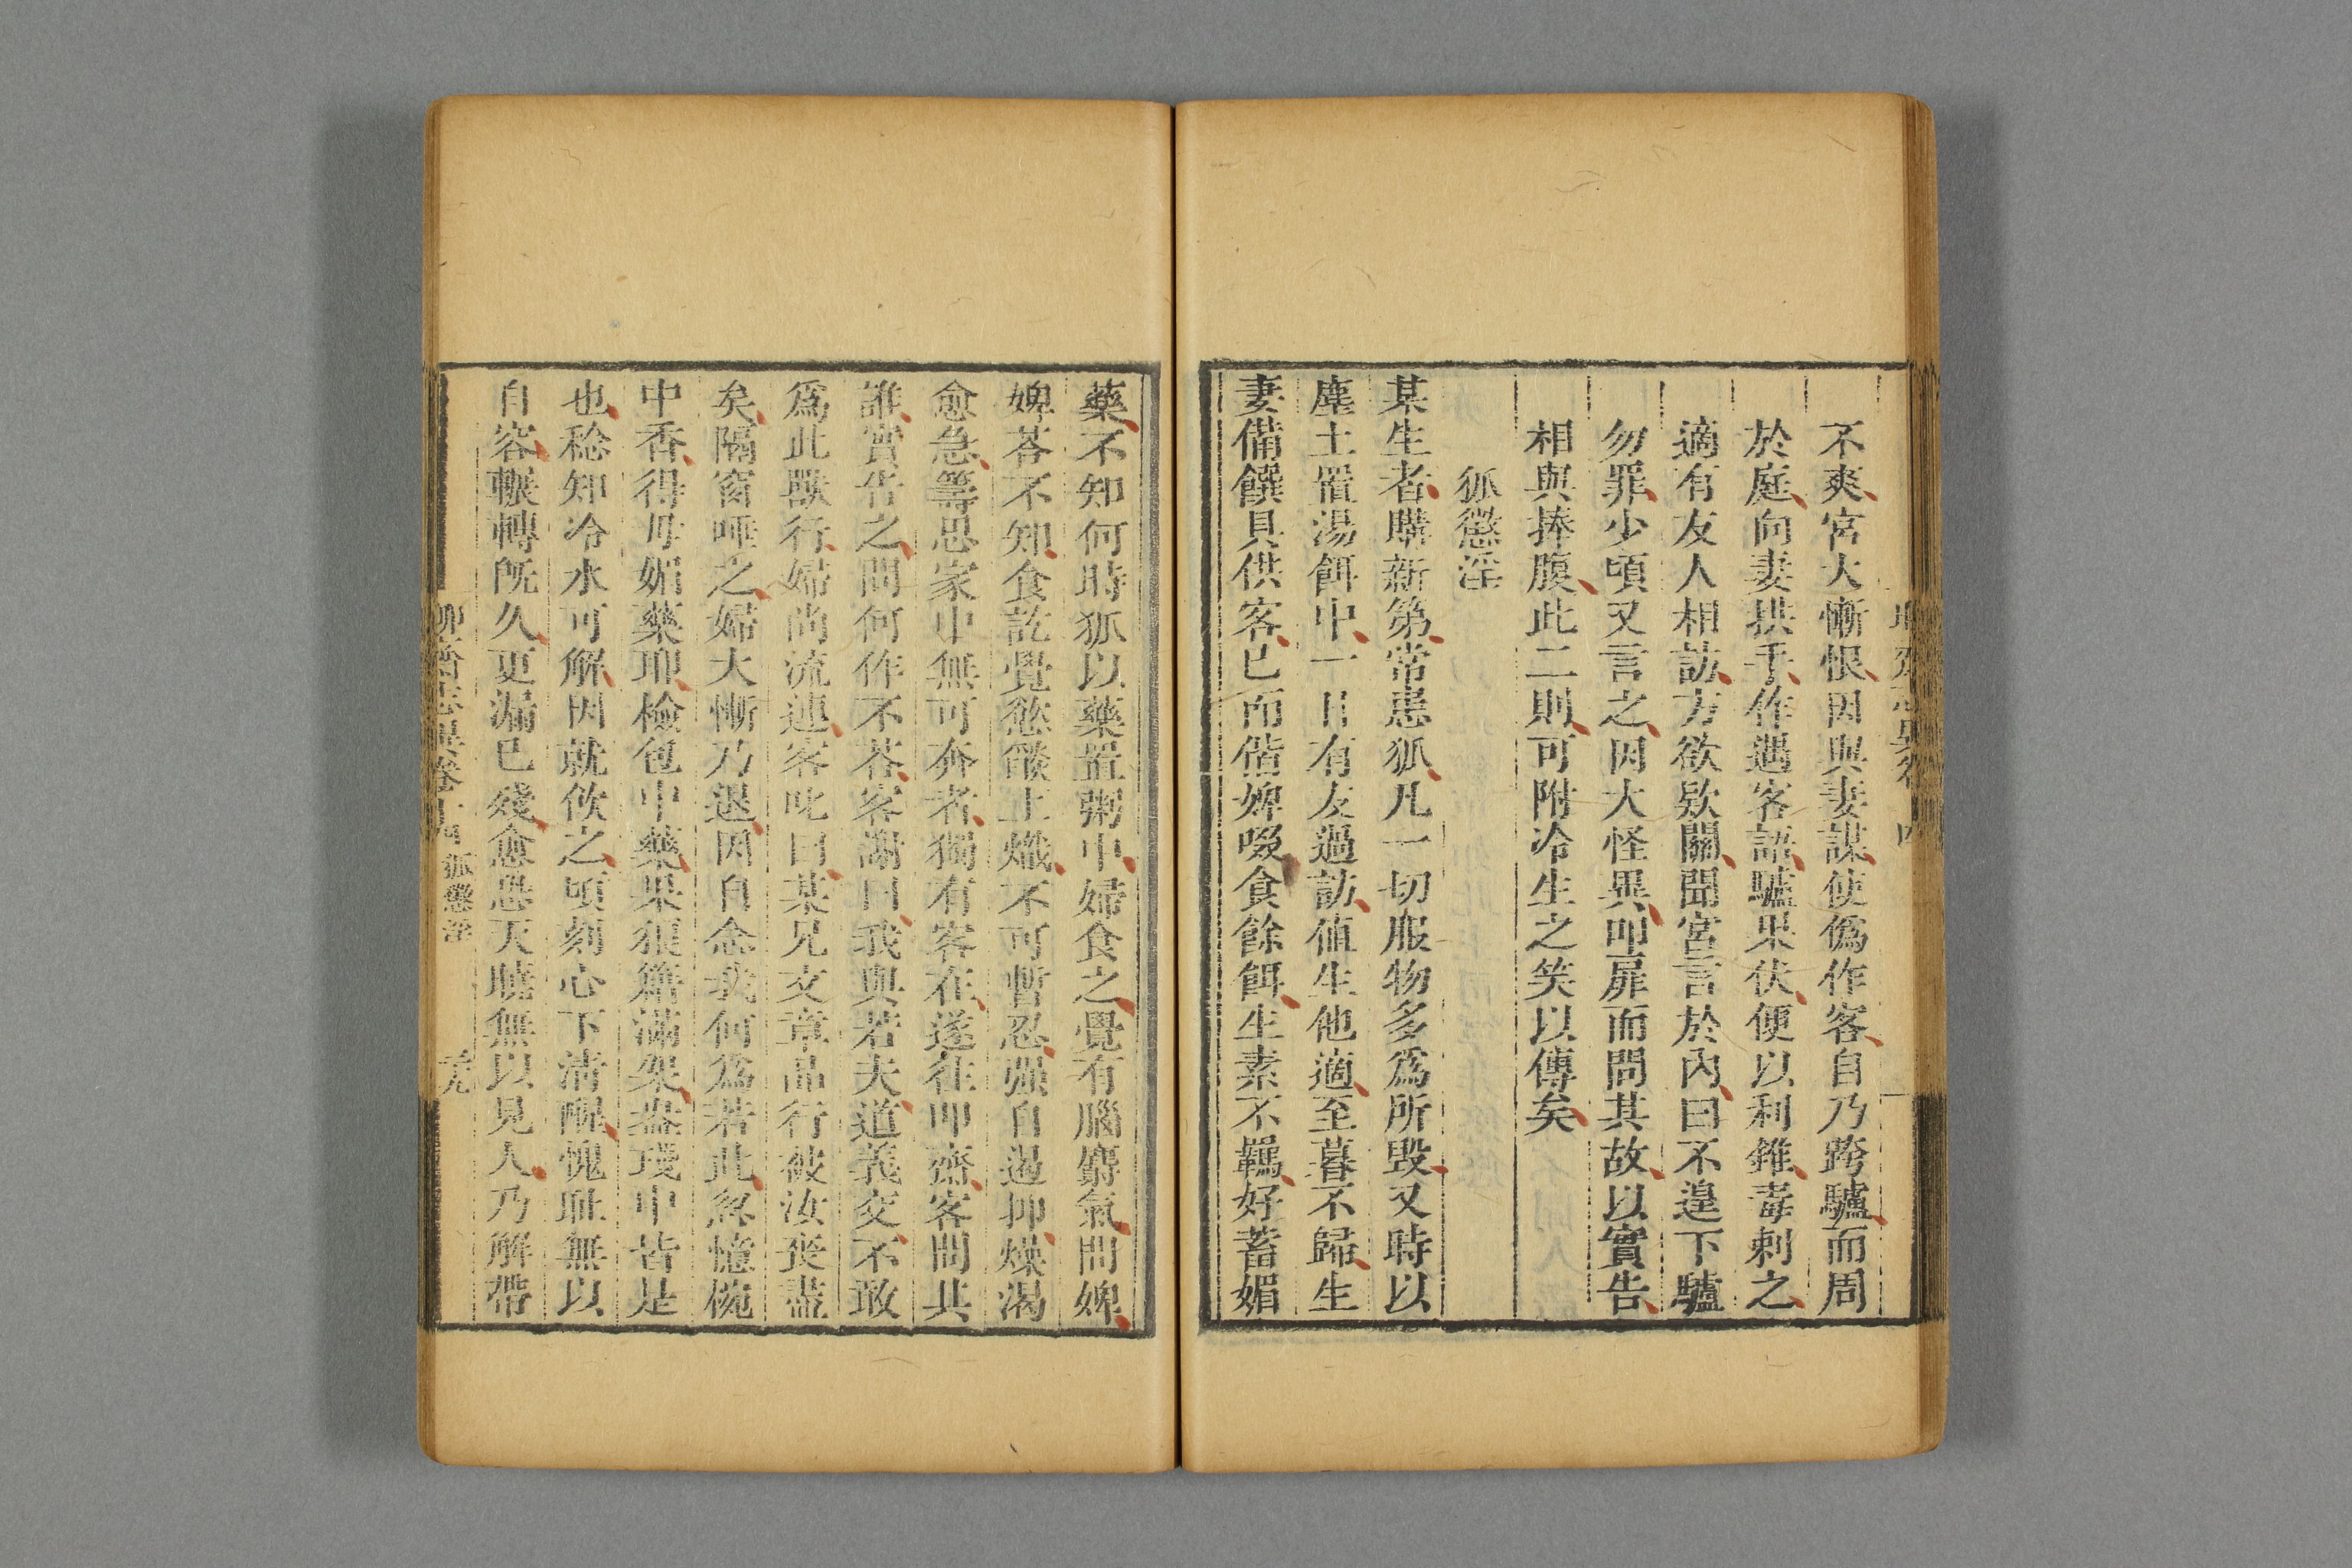 不爽宮大慚恨因與妻謀使僞作客自乃跨驢而周
於庭向妻拱手作遇客語驢果伏便以利錐毒刺之
適有友人相訪方欲欵關聞宮言於內曰不遑下驢
勿罪少頃又言之因大怪異叩扉而問其故以實告
相與捧腹此二則可附冷生之笑以傳矣
狐懲淫
某生者購新第常患狐凡一切服物多爲所毀又時以
塵土置湯餌中一日有友過訪值生他適至暮不歸生
妻備饌具供客已而偕婢啜食餘餌生素不羈好蓄媚
藥不知何時狐以藥置粥中婦食之覺有腦麝氣問婢
婢荅不知食訖覺慾燄上熾不可暫忍强自遏抑燥渴
愈急籌思家中無可奔者獨有客在遂往叩齋客問其
誰實告之問何作不荅客謝曰我與若夫道義交不敢
爲此獸行婦尚流連客叱曰某兄文章品行被汝喪盡
矣隔窗唾之婦大慚乃退因自念我何爲若此忽憶椀
中香得毋媚藥耶檢包中藥果狼籍滿架盎琖中皆是
也稔知冷水可解因就飲之頃刻心下清醒愧耻無以
自容輾轉旣久更漏已殘愈恐天曉無以見人乃解帶
狐懲淫